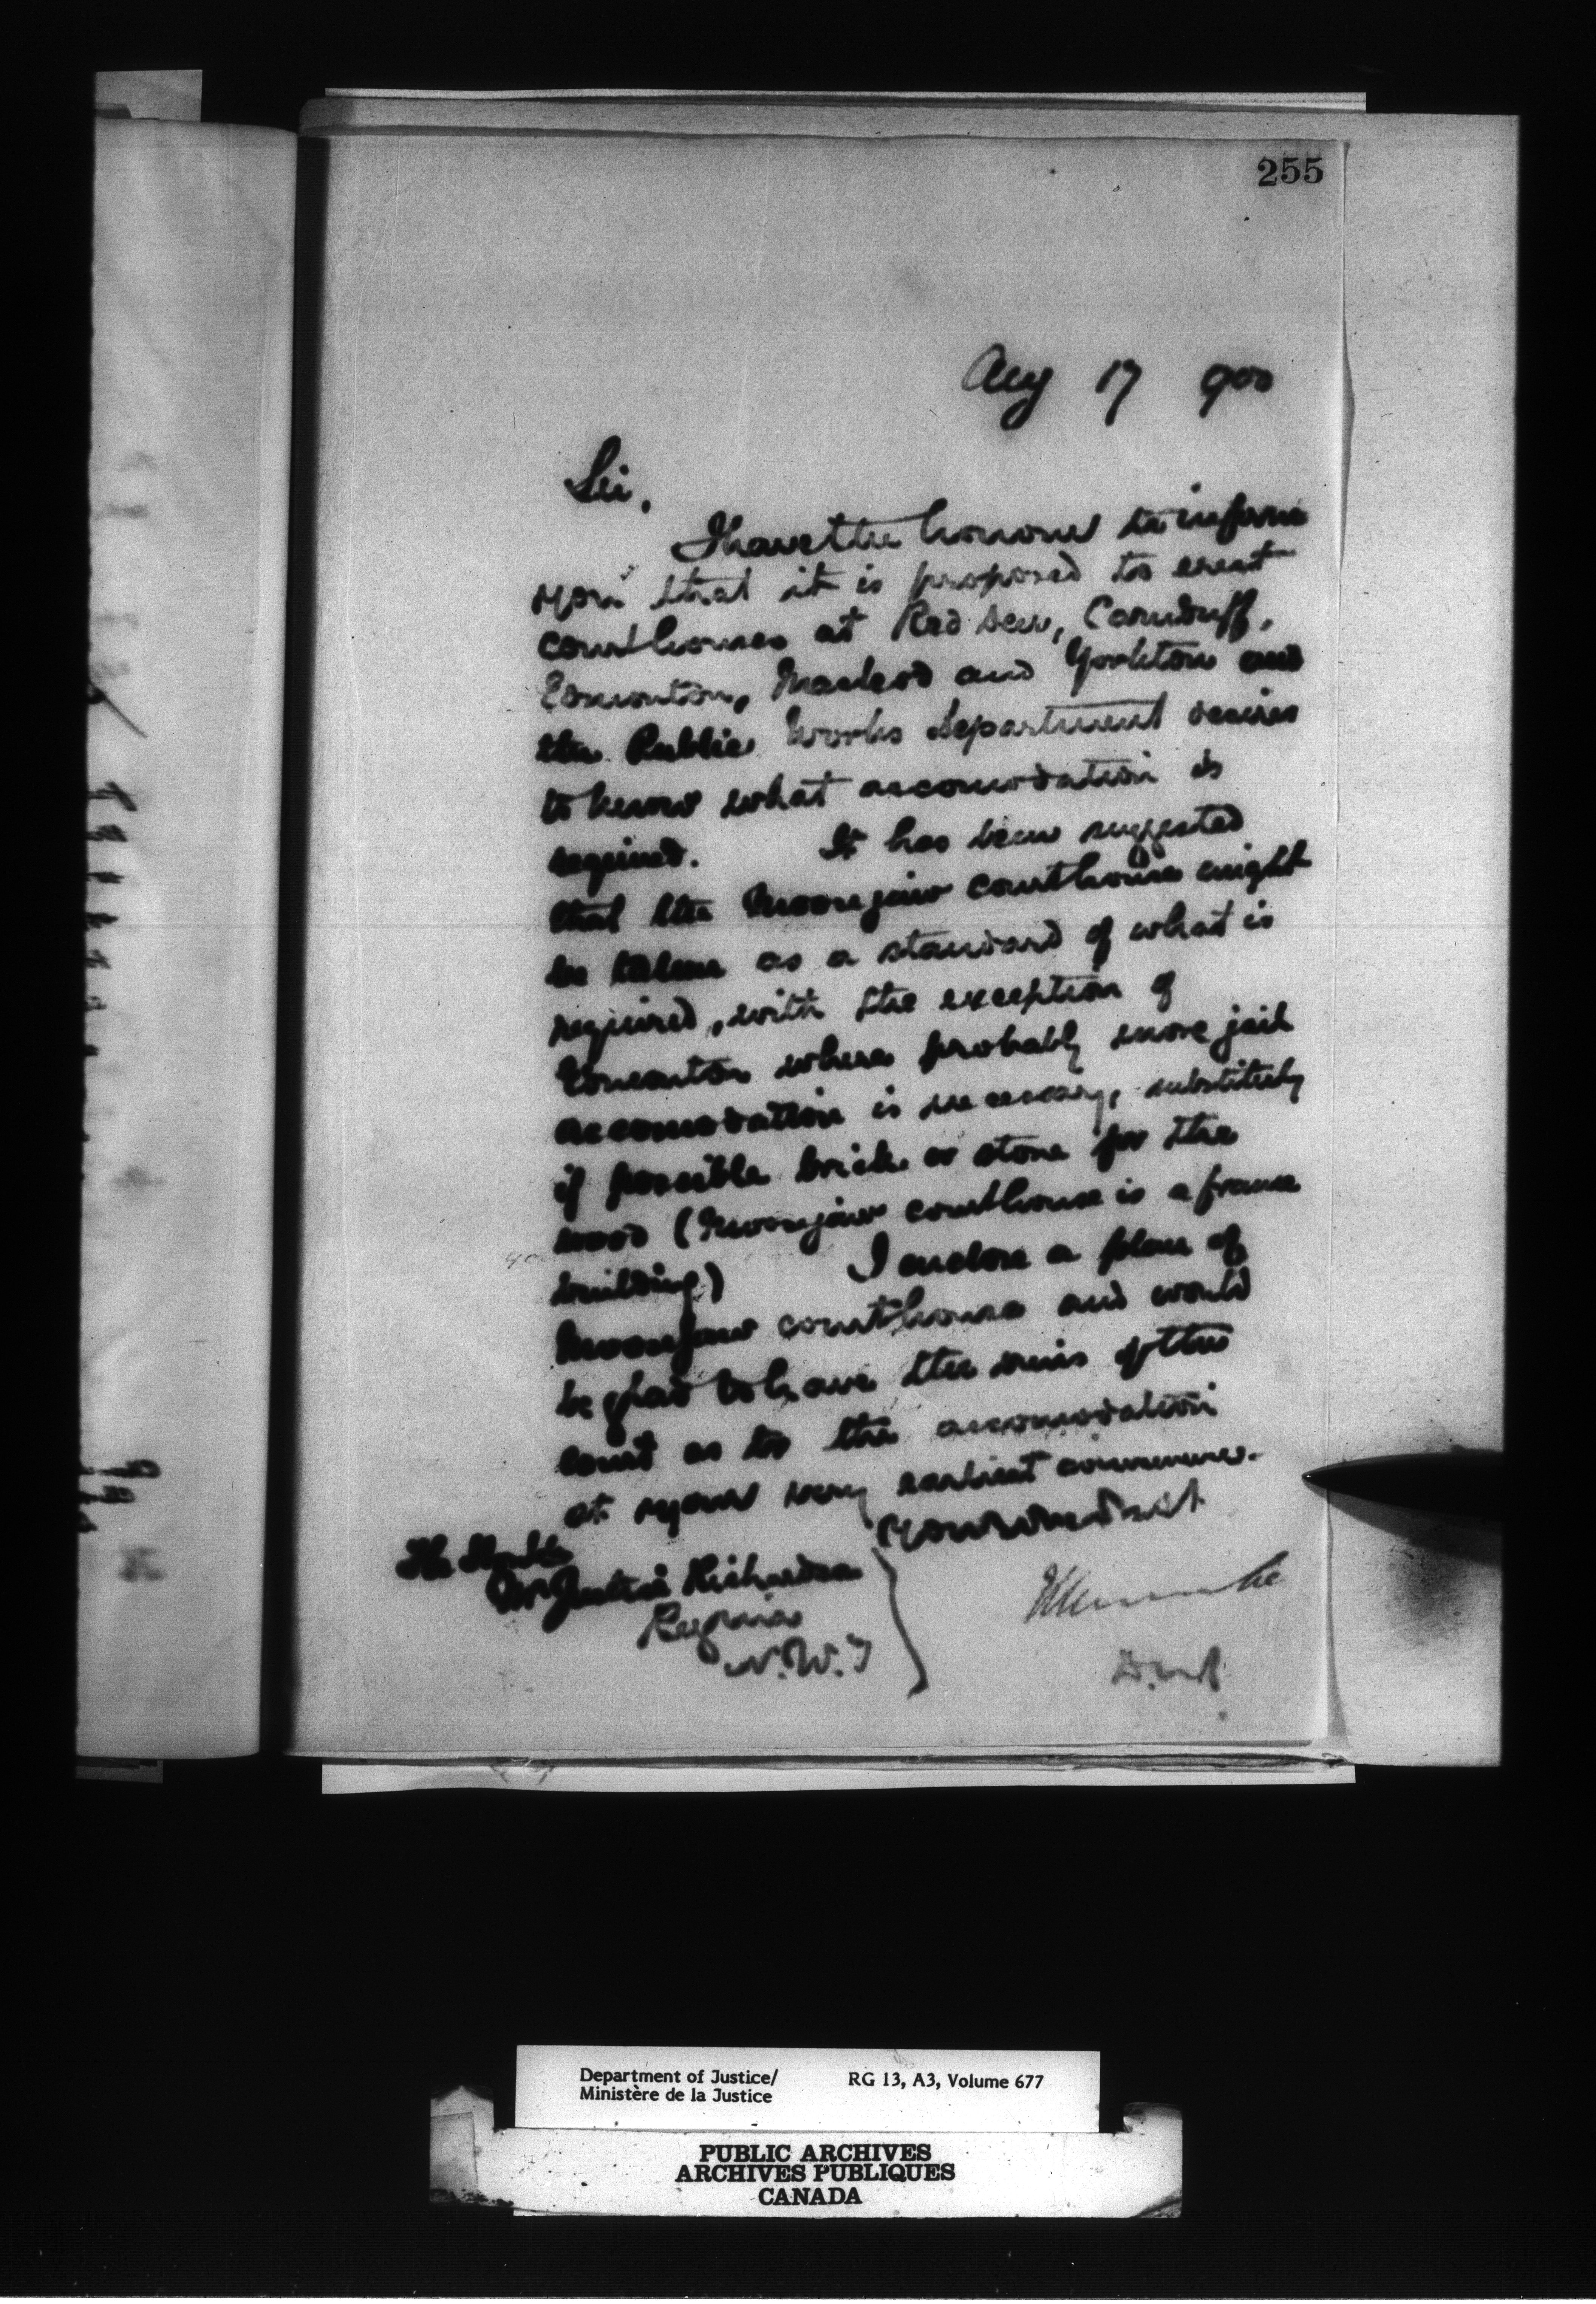 255
Aug 17 900
Sir,
I have the honour to inform
you that it is proposed to erect
courthouses at Red Deer, Carnduff,
Edmonton, Macleod and Yorkton and
the Public Works Department desires
to know what accomodation is
required. It has been suggested
that the Moosejaw courthouse might
be taken as a standard of what is
required, with the exception of
Edmonton where probably more jail
accomodation is necessary, substitutely
if possible brick or stone for the
wood (Moosejaw courthouse is a frame
building) I enclose a plan of
Moosejaw courthouse and would
be glad to have the views of the
court as to the accomodation
at your very earliest convenience.
Your obedient
The Honble
Mr Justice Richardson
Regina
N.W.T
D.M.J.
Department of Justice/
Ministère de la Justice
RG 13, A3, Volume 677
PUBLIC ARCHIVES
ARCHIVES PUBLIQUES
CANADA